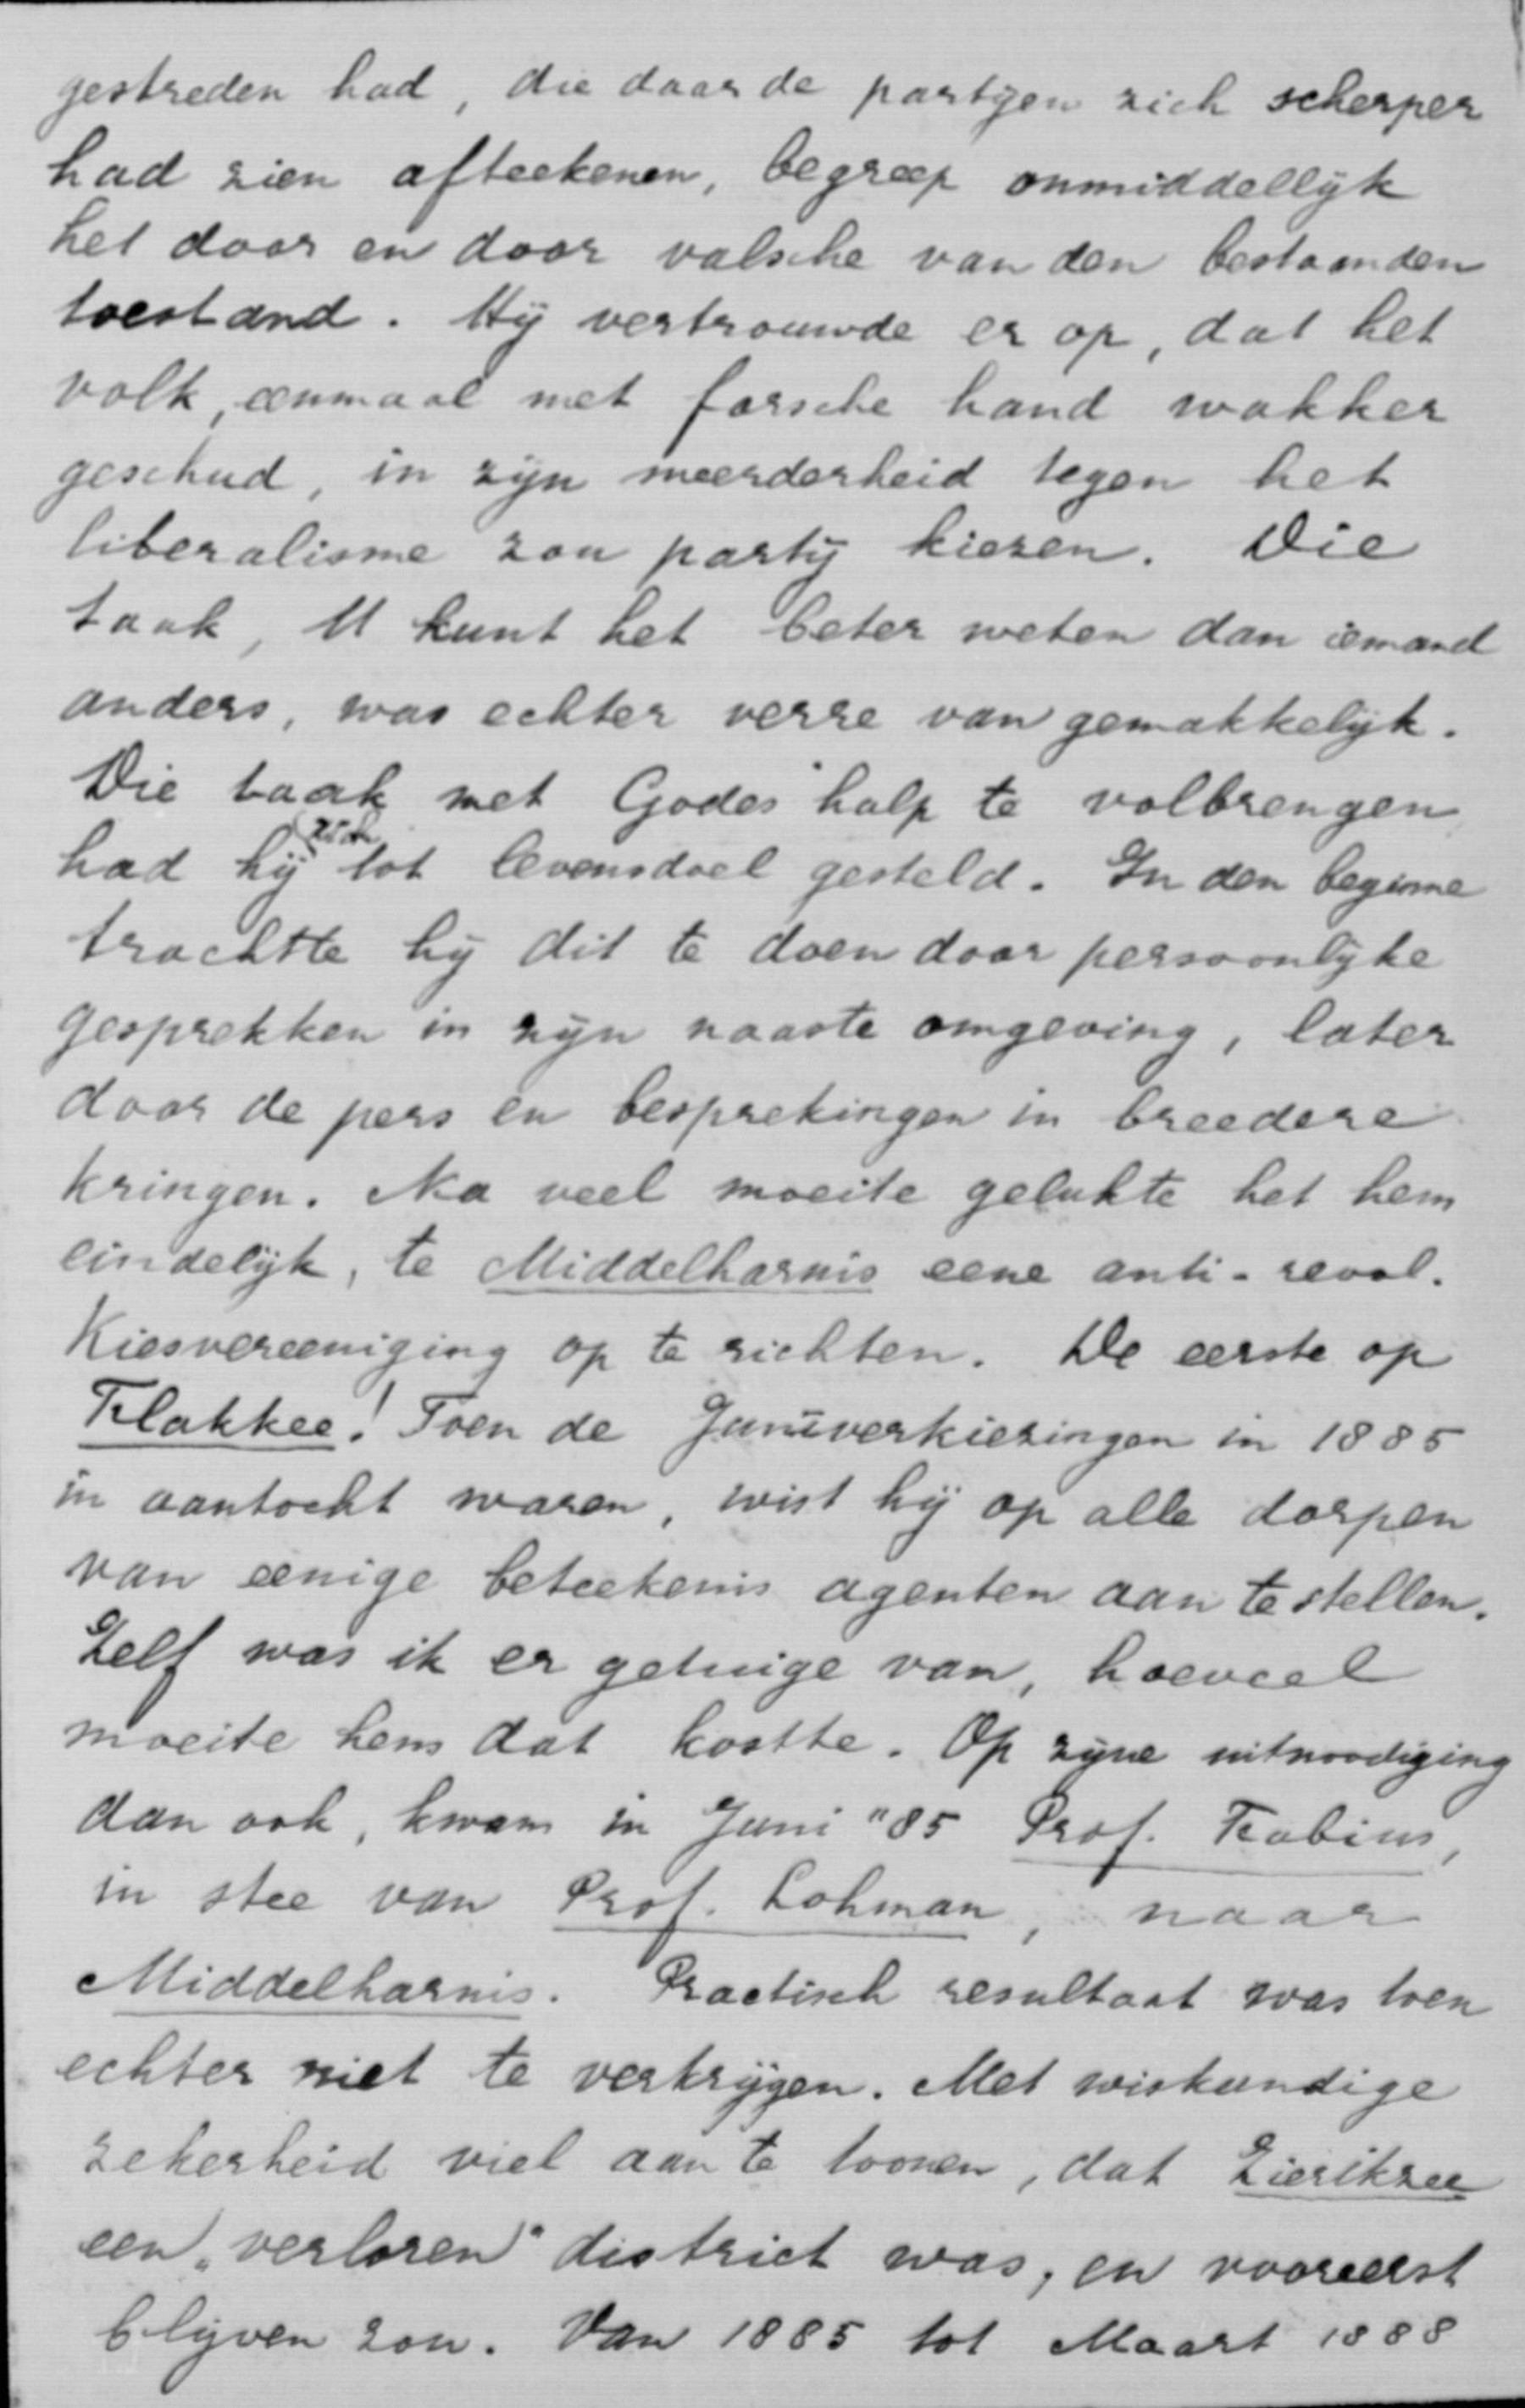 gestreden had, die daar de partijen zich scherper
had zien afteekenen, begreep onmiddellijk
het door en door valsche van den bestaanden
toestand. Hij vertrouwde er op, dat het
volk, eenmaal met forsche hand wakker
geschud, in zijn meerderheid tegen het
liberalisme zou partij kiezen. Die
taak, U kunt het beter weten dan iemand
anders, was echter verre van gemakkelijk.
Die taak met Godes hulp te volbrengen
had hij zich tot levensdoel gesteld. In den beginne
trachtte hij dit te doen door persoonlijke
gesprekken in zijn naaste omgeving, later
door de pers en besprekingen in breedere
kringen. Na veel moeite gelukte het hem
eindelijk, te Middelharnis eene anti-revol.
Kiesvereeniging op te richten. De eerste op
Flakkee! Toen de Juniverkiezingen in 1885
in aantocht waren, wist hij op alle dorpen
van eenige beteekenis agenten aan te stellen.
Zelf was ik er getuige van, hoeveel
moeite hem dat kostte. Op zijne uitnoodiging
dan ook, kwam in Juni "85 Prof. Fabius,
in stee van Prof. Lohman, naar
Middelharnis. Practisch resultaat was toen
echter niet te verkrijgen. Met wiskundige
zekerheid viel aan te toonen, dat Zierikzee
een „verloren" district was, en vooreerst
blijven zou. Van 1885 tot Maart 1888